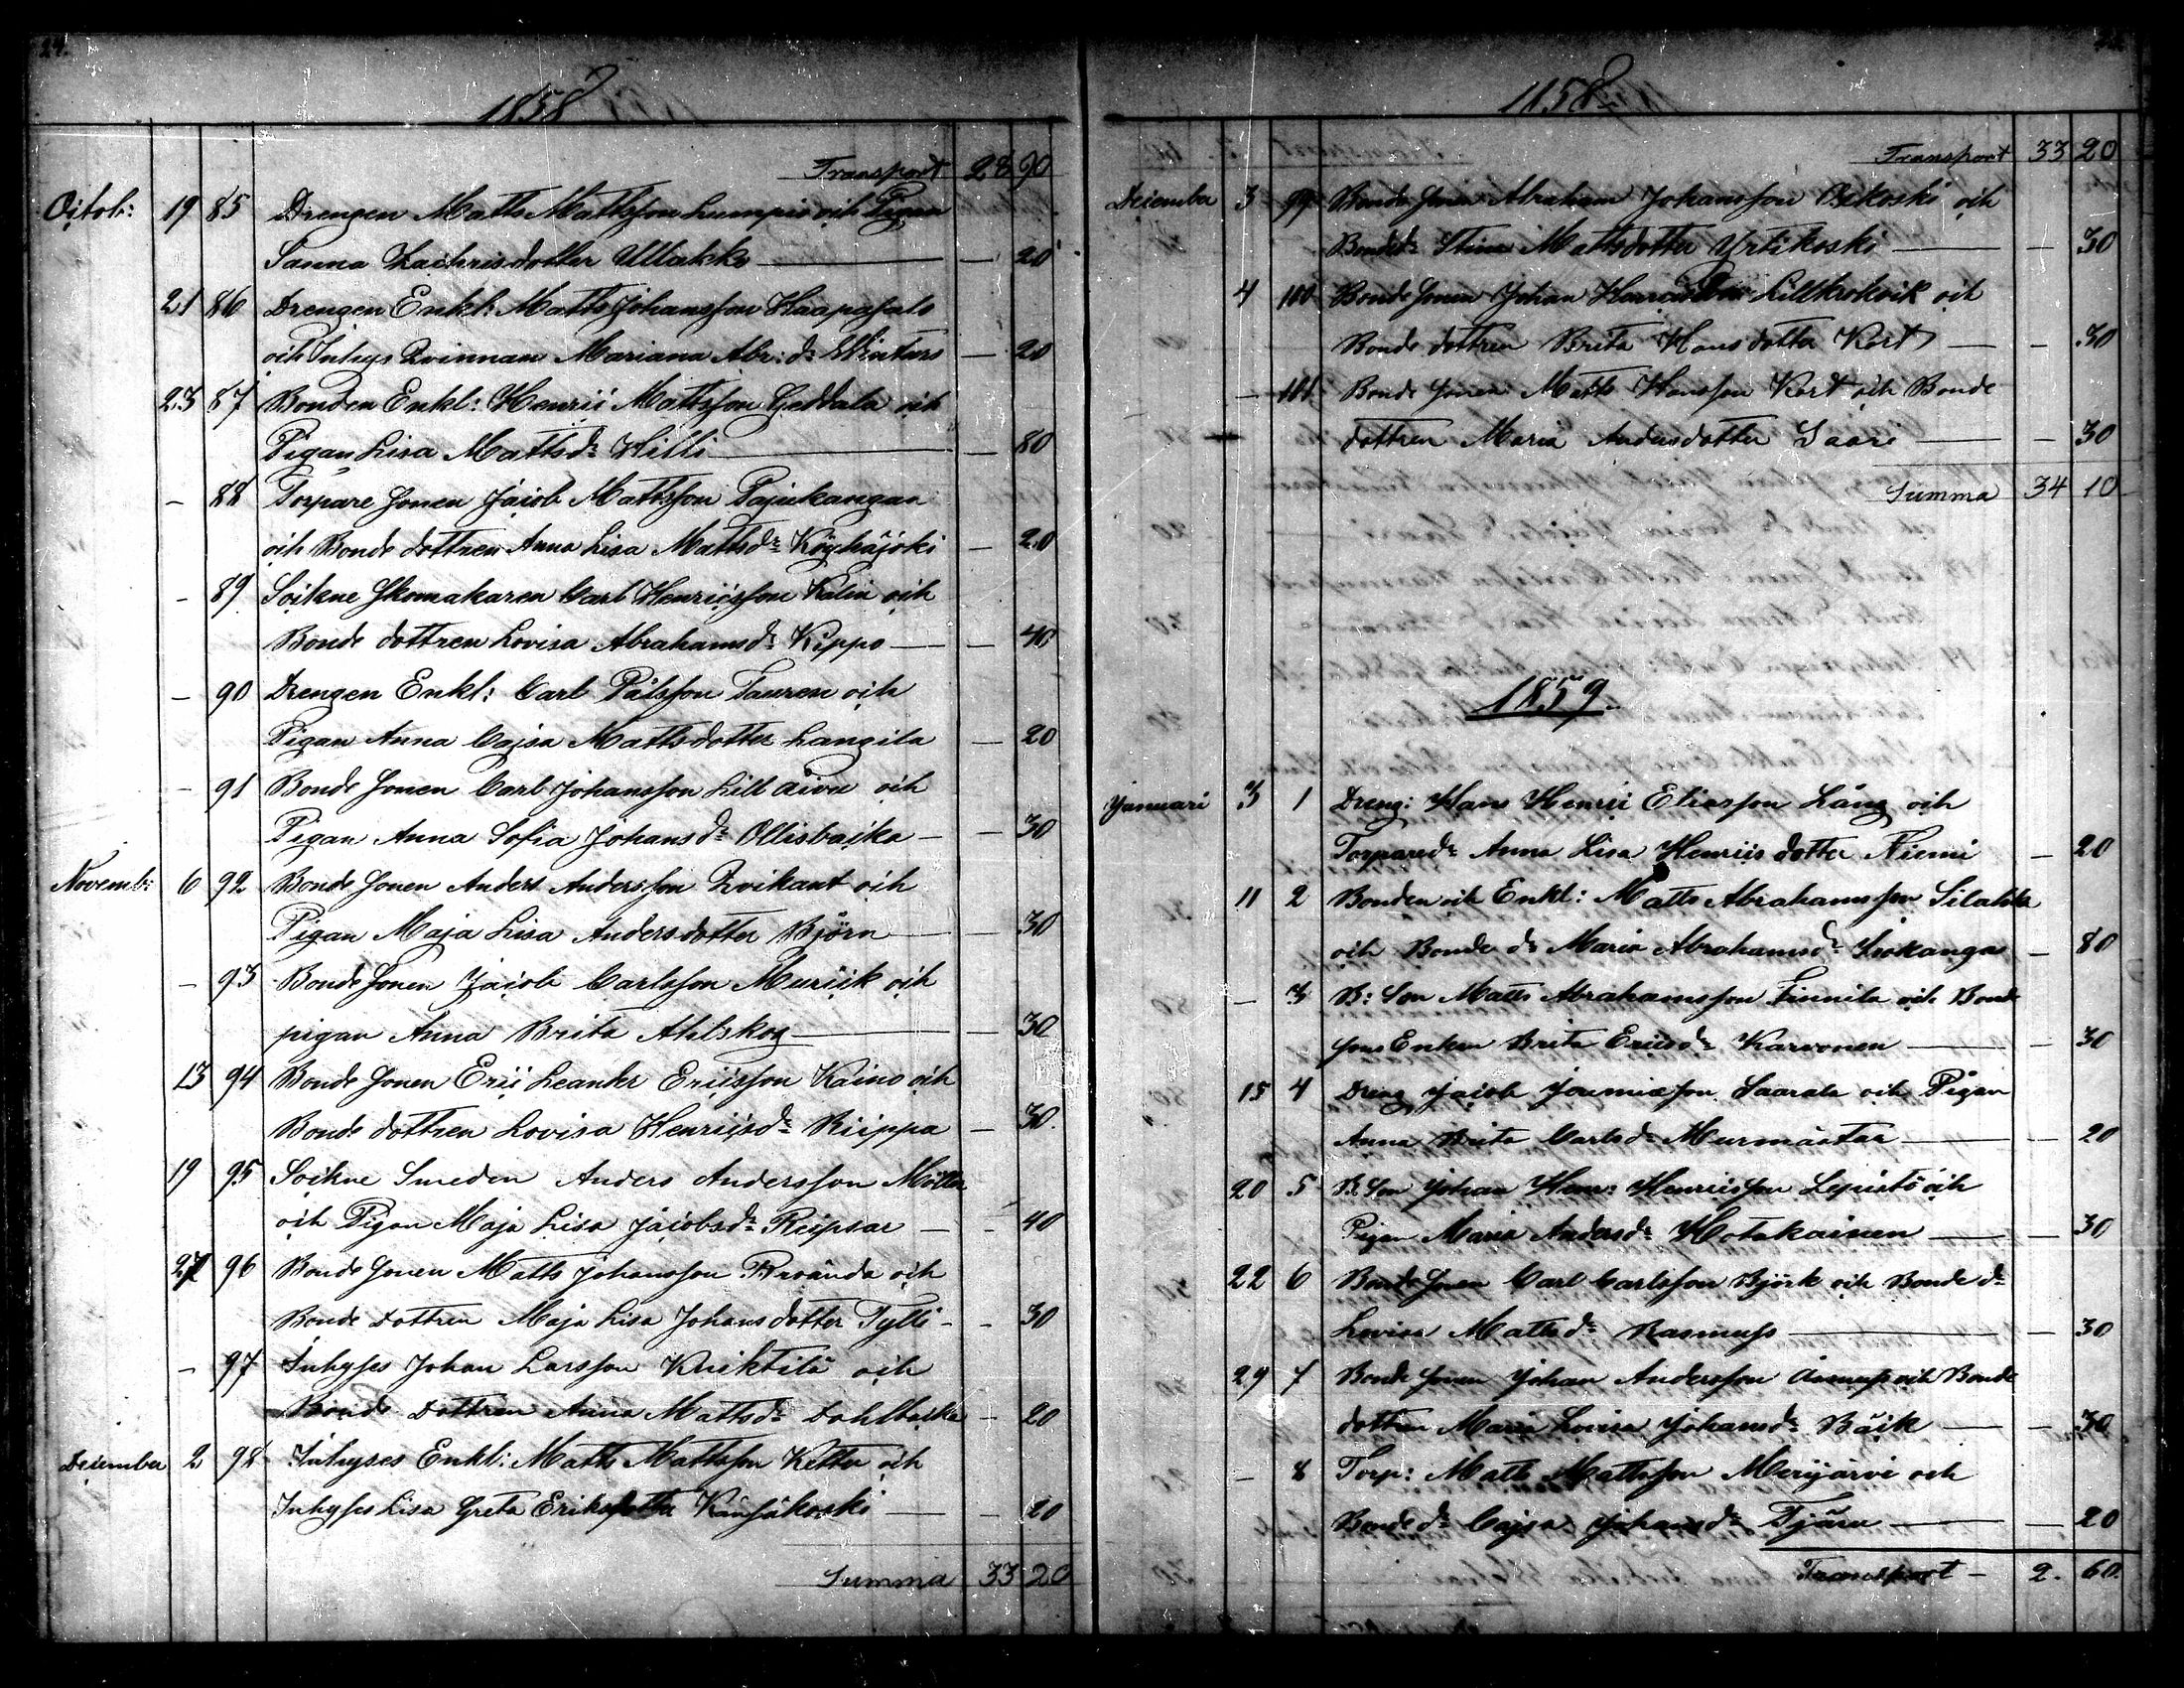 24.
1858
Transport 28 90
Octob: 19 85 Drengen Matts Mattsson Lumpio och Pigan
Sanna Zachrisdotter Ullakko — 20
21 86 Drengen Enkl: Matts Johansson Haapasalo
och Inhys Qvinnan Mariana Abr: dr Winturs — 20
23 87 Bonden Enkl: Henric Mattsson Geddala och
Pigan Lisa Mattsdr Hilli — 80
- 88 Torpare Sonen Jacob Mattsson Pajukangas
och Bonde dottren Anna Lisa Mattsdr Köyhäjoki — 20
- 89 Sockne Skomakaren Carl Henricsson Kalin och
Bonde dottren Lovisa Abrahamsdr Kippo — 40
- 90 Drengen Enkl: Carl Pålsson Tauren och
Pigan Anna Cajsa Mattsdotter Långila — 20
- 91 Bonde Sonen Carl Johansson Lill åivu och
Pigan Anna Sofia Johansdr Ollisbacka — 30
Novemb: 6 92 Bonde Sonen Anders Andersson Qvikant och
Pigan Maja Lisa Andersdotter Björn — 30
- 93 Bonde Sonen Jacob Carlsson Murick och
pigan Anna Brita Ahlskog — 30
13 94 Bonde Sonen Eric Leander Ericsson Kaino och
Bonde dottren Lovisa Henricsdr Riippa — 30.
19 95 Sockne Smeden Anders Andersson Möller
och Pigan Maja Lisa Jacobsdr Reipsar — 40
27 96 Bonde Sonen Matts Johansson Broända och
Bonde Dottren Maja Lisa Johansdotter Tylli — 30
- 97 Inhyses Johan Larsson Kniktilä och
Bonde Dottren Anna Mattsdr Dahlbacka — 20
December 2 98 Inhyses Enkl: Matts Mattsson Kettu och
Inhyses Lisa Greta Eriksdotter Känsäkoski — 20
Summa 33 20
1858
Transport 33 20
December 3 99 Bonde Sonen Abraham Johansson Oskoski och
Bondedr Stina Mattsdotter Yrtikoski — 30
4 100 Bonde Sonen Johan Lillkrokvik och
Bonde dottren Brita Hansdotter Kort — 30
— 101 Bonde Sonen Matts Hansson Kort och Bonde
dottren Maria Andersdotter Saari — 30
Summa 34 10
1859.
Januari 3 1 Dreng: Hans Henric Eliasson Lång och
Torparedr Anna Lisa Henricsdotter Niemi — 20
11 2 Bonden och Enkl: Matts Abrahamsson Silakka
och Bonde dr Maria Abrahamsdr Isokanga — 80
— 3 B: Son Matts Abrahamsson Finnila och Bonde
sons Enkan Brita Ericsdr Karvonen — 30
15 4 Dreng Jacob Jeremiasson Saarala och Pigan
Anna Brita Carlsdr Murmästar — 20
20 5 B. Son Johan Henr: Henricsson Lepistö och
Pigan Maria Andersdr Hotakainen — 30
22 6 Bonde Sonen Carl Carlsson Björk och Bonde dr
Lovisa Mattsdr Rasmuss — 30
29 7 Bonde Sonen Johan Andersson och Bonde
dottren Maria Lovisa Johansdr Bäck — 30
— 8 Torp: Matts Mattsson Merijärvi och
Bonde dr Cajsa Johansdr Tjäru — 20
Transport — 2. 60.